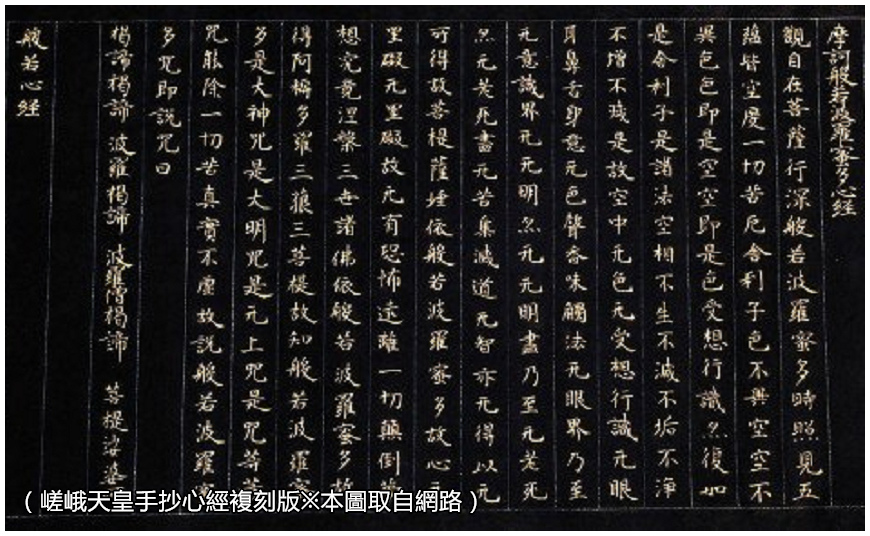 摩訶般若波羅蜜多心経
觀自在菩薩行深般若波羅蜜多時照見五
蘊皆空度一切苦厄舍利子色不異空空不
異色色即是空空即是色受想行識亦復如
是舍利子是諸法空相不生不滅不垢不淨
不增不減是故空中无色无受想行識无眼
耳鼻舌身意无色聲香味觸法无眼界乃至
无意識界无无明亦无无明盡乃至无老死
亦无老死盡无苦集滅道无智亦无得以无
可得故菩提薩埵依般若波羅蜜多故心无
罣礙无罣礙故无有恐怖遠離一切顛倒
想究竟涅槃三世諸佛依般若波羅蜜多故
得阿耨多羅三藐三菩提故知般若波羅蜜
多是大神咒是大明咒是无上咒是咒等等
咒能除一切苦真實不虛故說般若波羅蜜
多咒即說咒曰
揭諦揭諦 波羅揭諦 波羅僧揭諦 菩提娑婆
般若心経
（嵯峨天皇手抄心經複刻版※本圖取自網路）